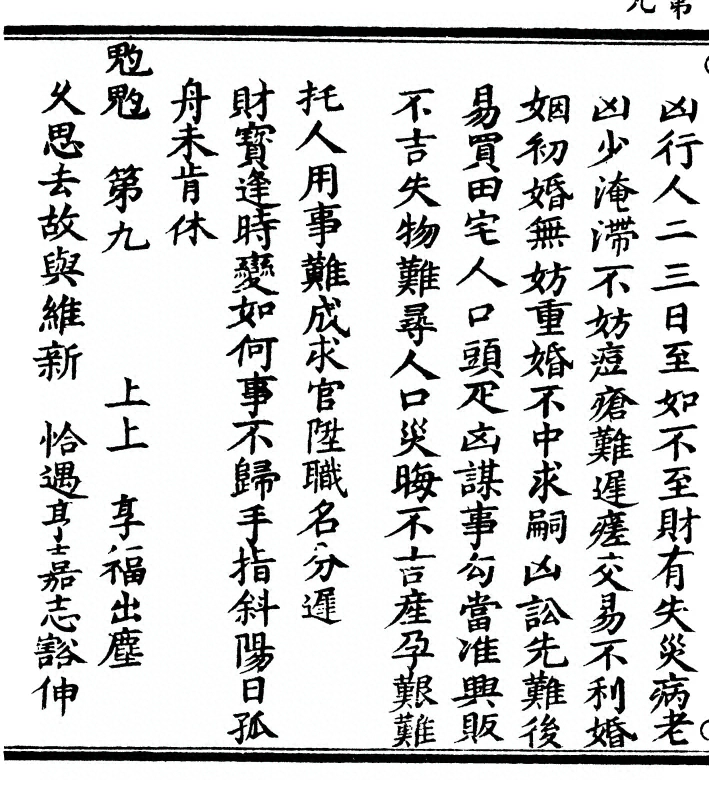 第九
凶行人二三日至如不至財有失災病老
凶少淹滯不妨痘瘡難遲瘥交易不利婚
姻初婚無妨重婚不中求嗣凶訟先難後
易買田宅人口頭疋凶謀事勾當准興販
不吉失物難尋人口災晦不吉產孕艱難
托人用事難成求官陞職名分遲
財寶逢時變如何事不歸手指斜陽日孤
舟未肯休
魁魁 第九 上上 享福出塵
久思去故與維新 恰遇亨嘉志豁伸